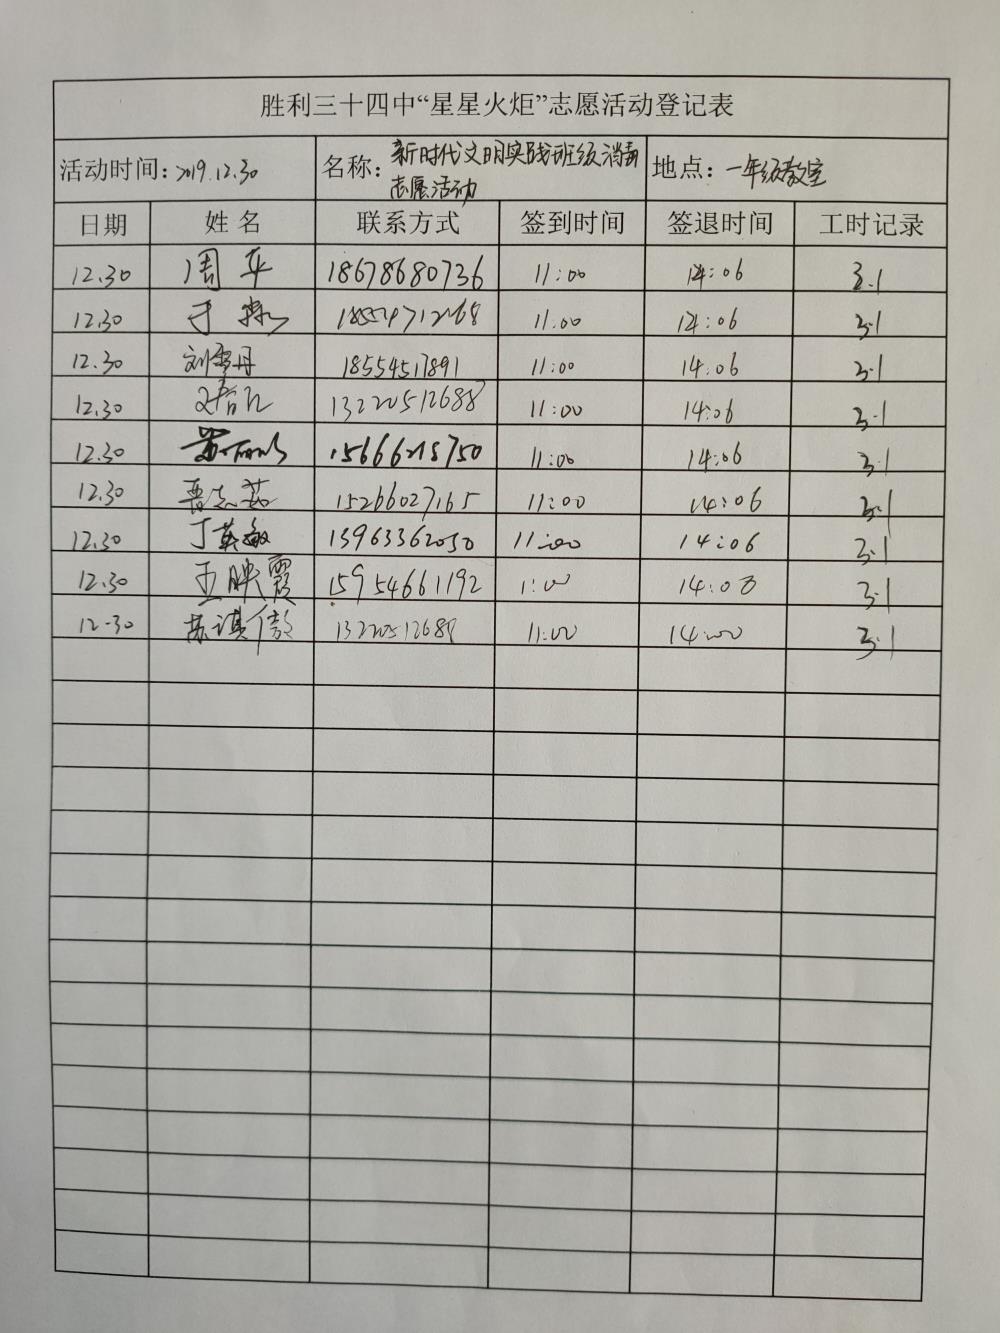 胜利三十四中“星星火炬”志愿活动登记表
活动时间: 2019.12.30 名称: 新时代文明实践班级消毒 地点: 一年级教室
志愿活动
日期 姓名 联系方式 签到时间 签退时间 工时记录
12.30 周平 18678680736 11:00 14:06 3.1
12.30 于 18554712168 11:00 14:06 3.1
12.30 刘雪丹 18554517891 11:00 14:06 3.1
12.30 13220512688 11:00 14:06 3.1
12.30 15666218750 11:00 14:06 3.1
12.30 15266027165 11:00 14:06 3.1
12.30 丁英敏 13963362050 11:00 14:06 3.1
12.30 王映霞 15954661192 1:00 14:00 3.1
12-30 苏淇傲 13220512688 11:00 14:00 3.1